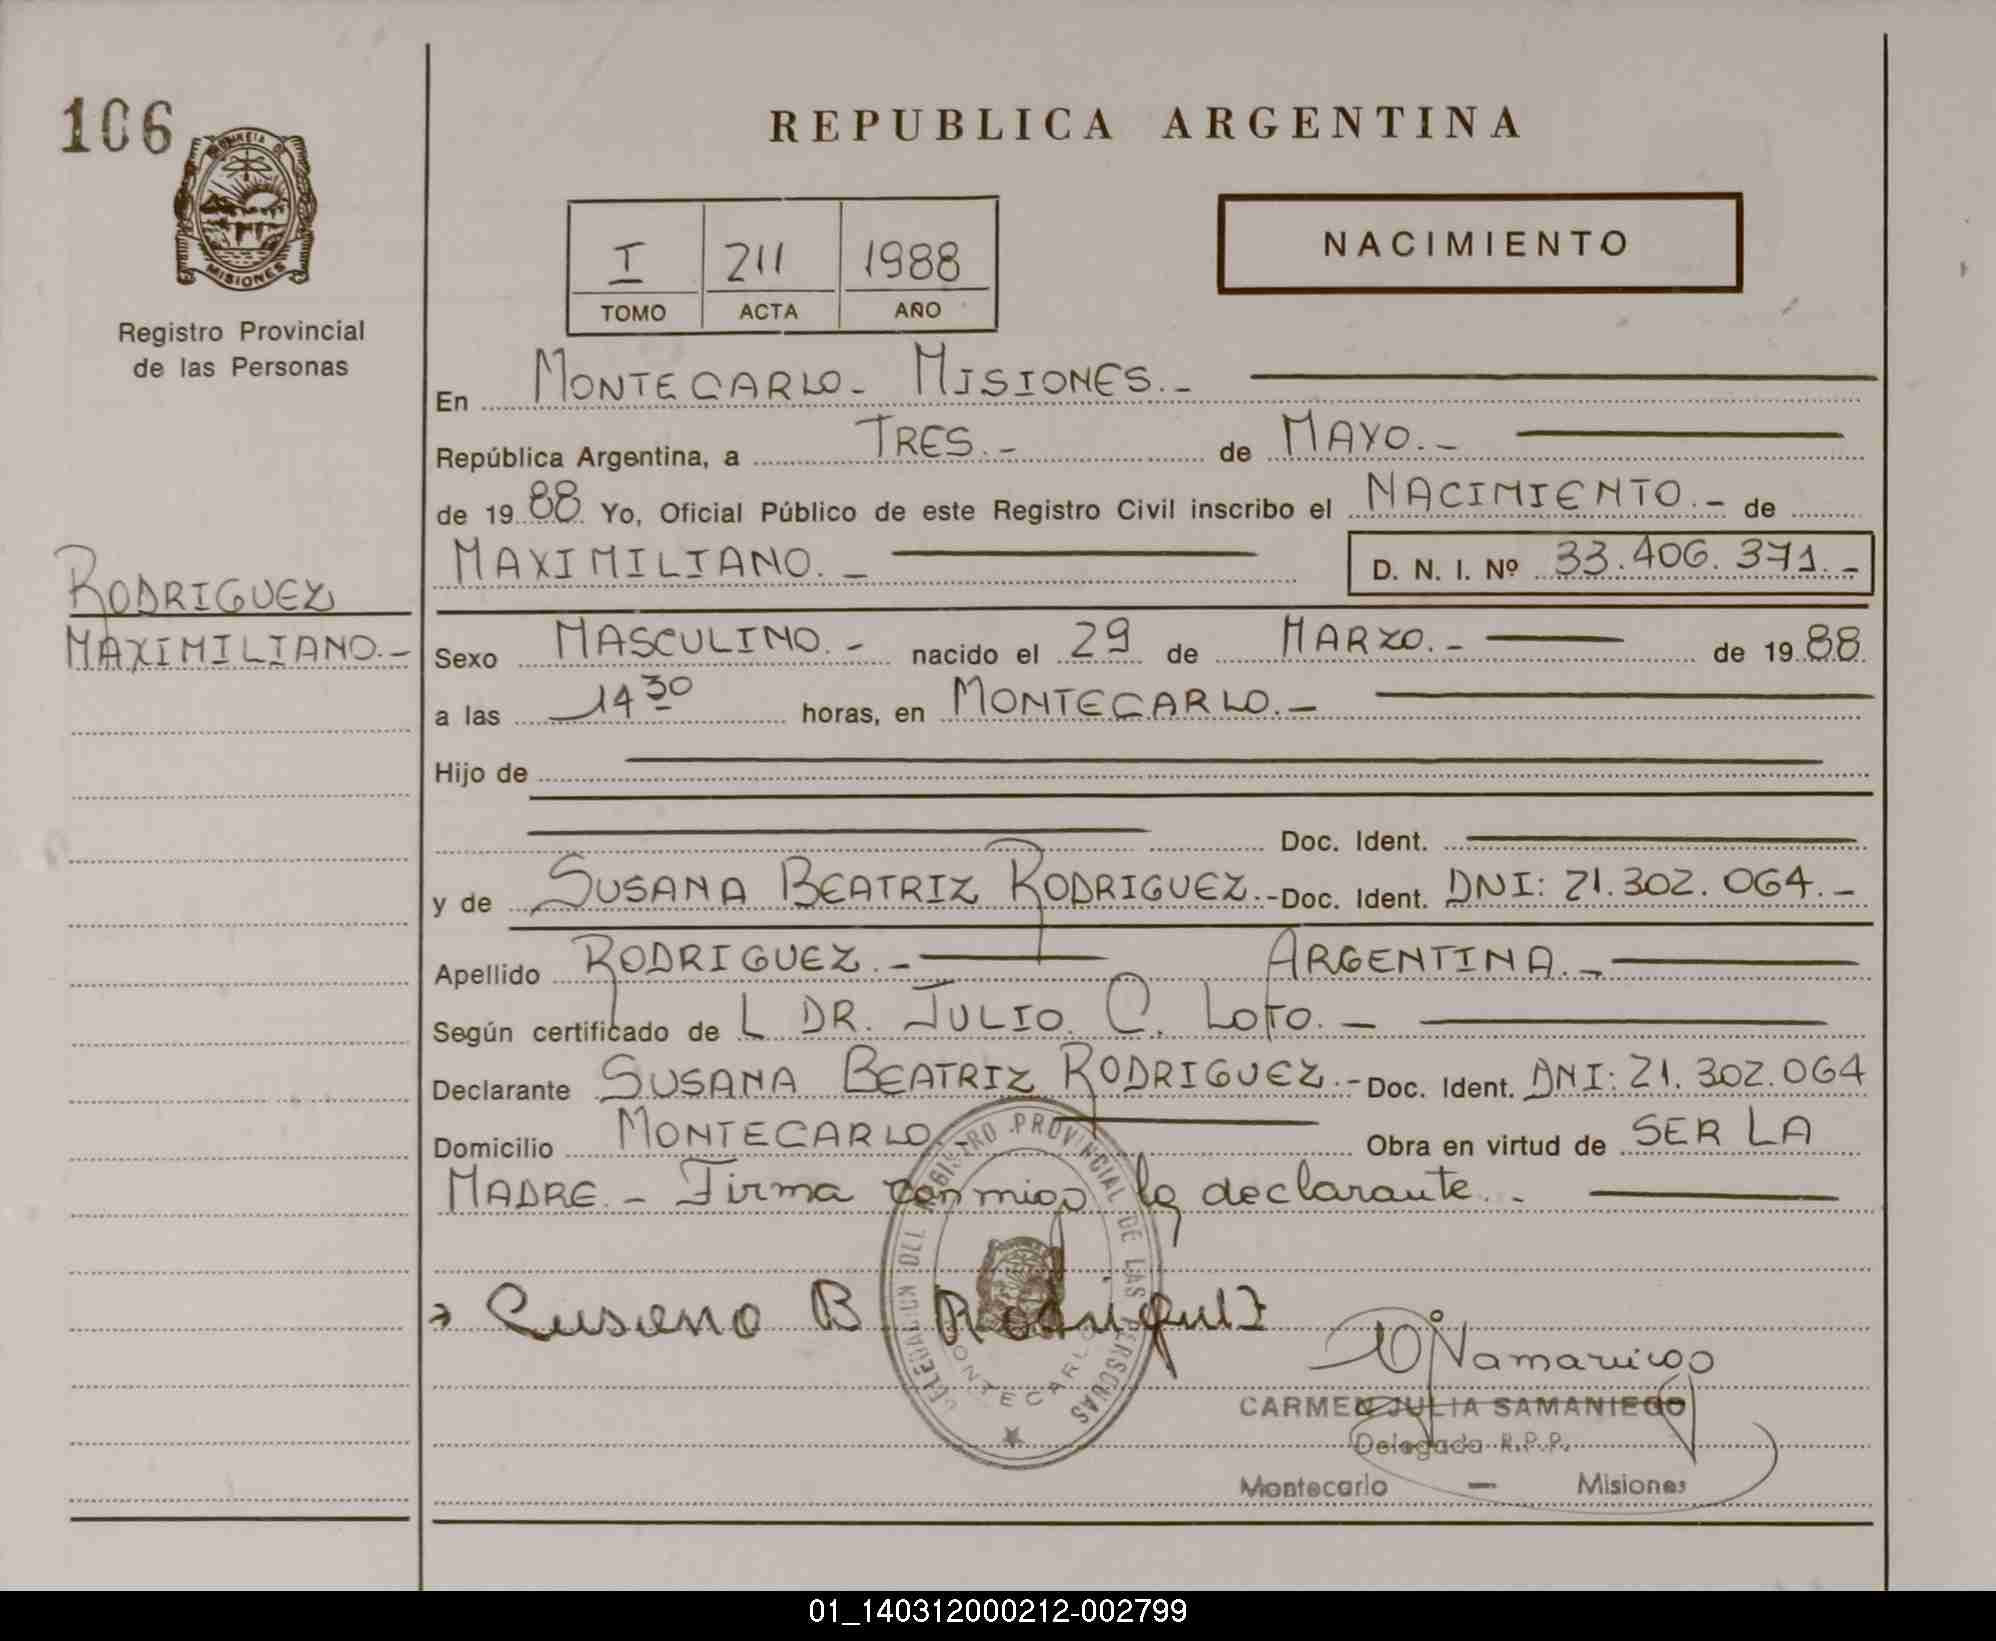 106
PROVINCIA DE
MISIONES
Registro Provincial
de las Personas
RODRIGUEZ
MAXIMILIANO.-
REPUBLICA ARGENTINA
I 211 1988
TOMO ACTA AÑO
NACIMIENTO
En MONTECARLO- MISIONES.-
República Argentina, a TRES.- de MAYO.-
de 1988. Yo, Oficial Público de este Registro Civil inscribo el NACIMIENTO.- de
MAXIMILIANO.- D. N. I. Nº 33.406.371.-
Sexo MASCULINO.- nacido el 29 de MARZO.- de 1988.
a las 14 30 horas, en MONTECARLO.-
Hijo de
Doc. Ident.
y de SUSANA BEATRIZ RODRIGUEZ.- Doc. Ident. DNI: 21.302.064.-
Apellido RODRIGUEZ.- ARGENTINA.-
Según certificado de L DR. JULIO C. LOTO.-
Declarante SUSANA BEATRIZ RODRIGUEZ.- Doc. Ident. DNI: 21.302.064
Domicilio MONTECARLO.- Obra en virtud de SER LA
MADRE.- Firma conmigo la declarante.-
Susana B Rodriguez
DELEGACION DEL REGISTRO PROVINCIAL DE LAS PERSONAS
MONTECARLO
CARMEN JULIA SAMANIEGO
Delegada R.P.P.
Montecarlo - Misiones
01_140312000212-002799